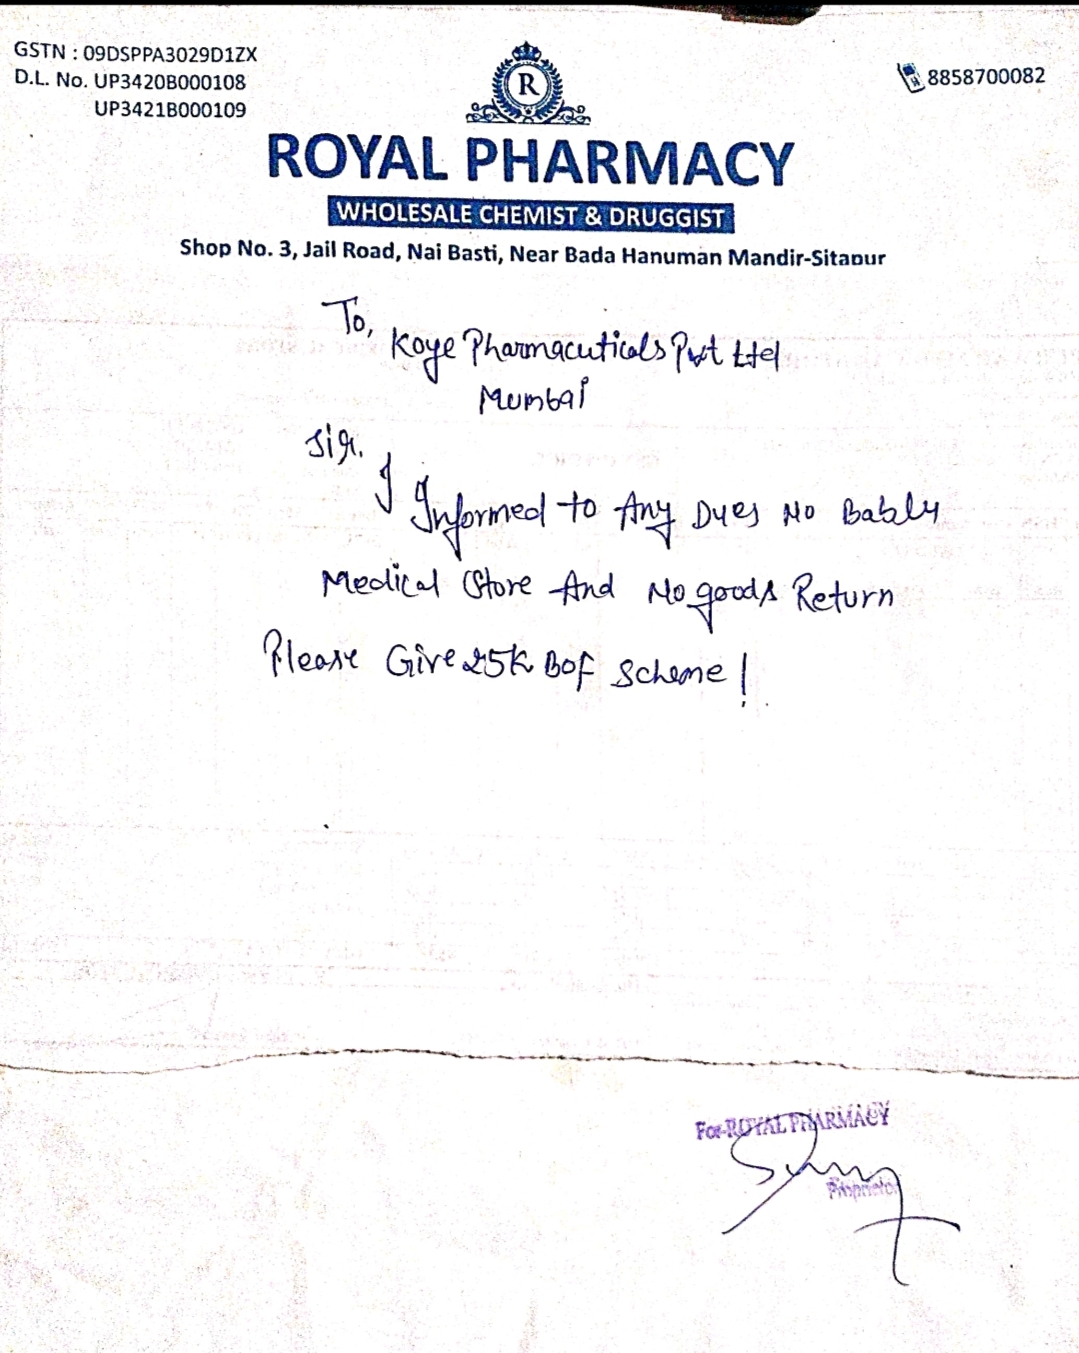 GSTN : 09DSPPA3029D1ZX
D.L. No. UP3420B000108
UP3421B000109
8858700082
R
ROYAL PHARMACY
WHOLESALE CHEMIST & DRUGGIST
Shop No. 3, Jail Road, Nai Basti, Near Bada Hanuman Mandir-Sitapur
To,
Koye Pharmacuticals Pvt Ltd
Mumbai
Sir.
I Informed to Any Dues No Bably
Medical Store And No goods Return
Please Give 25K BOF Scheme!
For-ROYAL PHARMACY
Proprietor